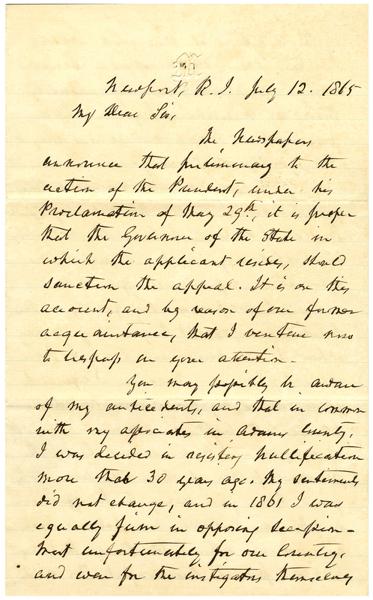 Newport, R.I. July 12. 1865
My Dear Sir,
The Newspapers
announce that preliminary to the
action of the President, under his
Proclamation of May 29th, it is proper
that the Governor of the State in
which the applicant resides, should
sanction the appeal. It is on this
account, and by reason of our former
acquaintance, that I venture now
to trespass on your attention—
You may possibly be aware
of my antecedents, and that in common
with my associates in Adams County,
I was decided in resisting Nullification
more that 30 years ago. My sentiments
did not change, and in 1861 I was
equally firm in opposing Secession—
Most unfortunately for our Country,
and even for the instigators themselves